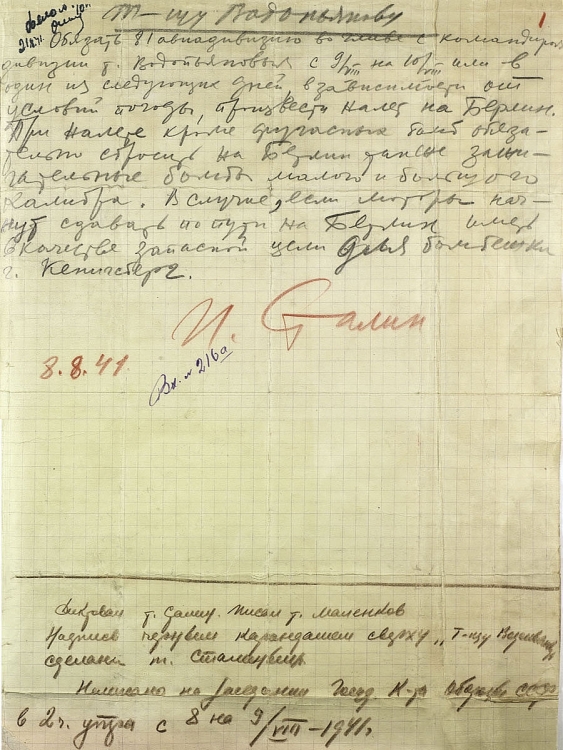 Т-щу Водопьянову
1
Обязать 81 авиадивизию во главе с командиром
дивизии т. Водопьяновым с 9/VIII на 10/VIII или в
один из следующих дней, в зависимости от
условий погоды, произвести налет на Берлин.
При налете кроме фугасных бомб обяза-
тельно сбросить на Берлин также зажи-
гательные бомбы малого и большого
калибра. В случае, если моторы нач-
нут сдавать по пути на Берлин иметь
в качестве запасной цели для бомбежки
г. Кенигсберг.
И. Сталин
8.8.41
Вх. № 216а
Диктовал т. Сталин. Писал т. Маленков
Надпись черным карандашем сверху „Т-щу Водопьянову
сделана т. Сталиным
Написано на заседании Госуд. К-та Обороны СССР
в 2 ч. утра с 8 на 9/VIII-1941г.